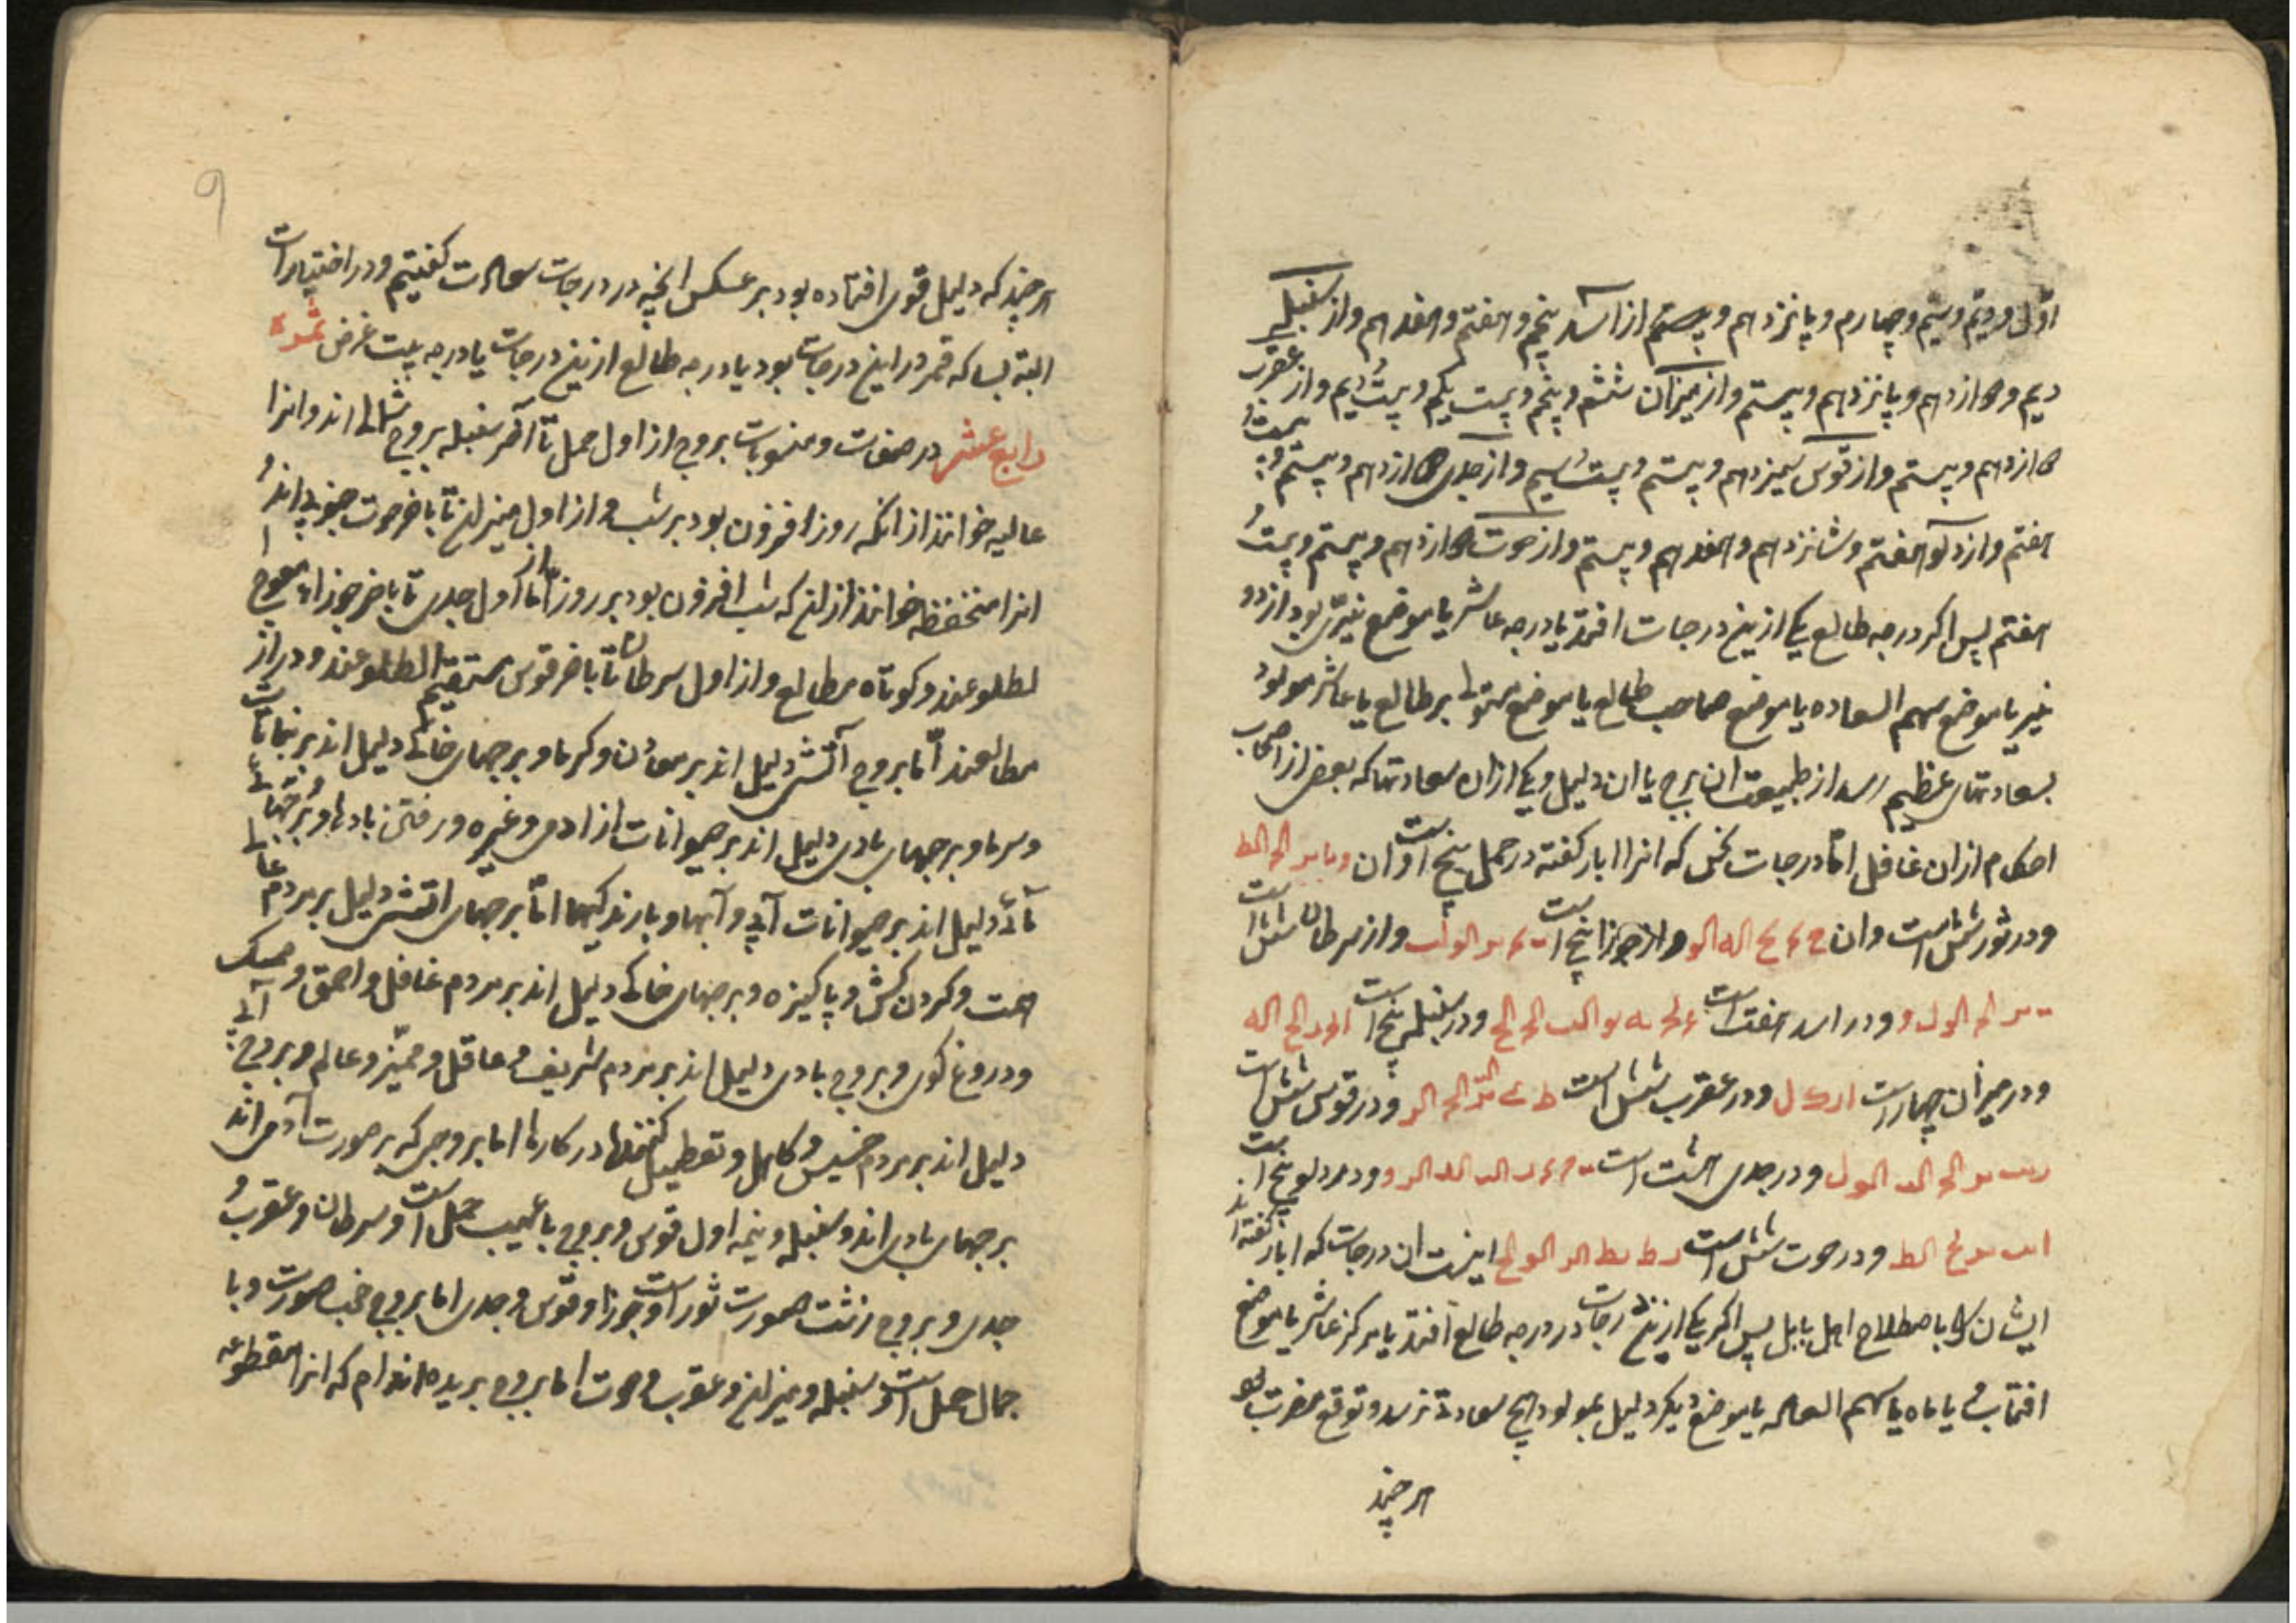 اوّل و دیم و سیم و چهارم و پانزدهم و بیستم از اسد پنجم و هفتم و هفدهم و از سنبله
دیم و دوازدهم و پانزدهم و بیستم و از میزان ششم و پنجم و بیست یکم و بیست دیم و از عقرب
دوازدهم و بیستم و از قوس سیزدهم و بیستم و بیست سیم و از جدی دوازدهم و بیستم و بیست و
هفتم و از دلو هفتم و شانزدهم و هفدهم و بیستم و از حوت دوازدهم و بیستم و بیست و
هفتم پس اکر درجه طالع یکی ازین درجات افتد یا درجه عاشر یا موضع نیّری بود از دو
نیر یا موضع سهم السعاده یا موضع صاحب طالع یا موضع مستولی بر طالع یا عاشر مولود
بسعادتهای عظیم رسد از طبیعت ان برج یا ان دلیل و یکی ازان سعادتها که بعضی از اصحاب
احکام ازان غافل امّا درجات نحس که انرا ابار کفته در حمل پنج است و ان
و در ثور شش است و ان و از جوزا پنج است و از سرطان شش است
و در اسد هفت است و در سنبله پنج است
و در میزان چهار است و در عقرب شش است و در قوس شش است
و در جدی هشت است و در دلو پنج است
و در حوت شش است اینست ان درجات که ابار کفته اند
ایشان را باصطلاح اهل بابل پس اکر یکی ازین درجات در درجه طالع افتد یا مرکز عاشر یا موضع
افتاب و یا ماه یا سهم السعاده یا موضع دیکر دلیل بمولود هیچ سعادتی نرسد و توقع مضرت بود
هر چند
9
هر چند که دلیل قوی افتاده بود بر عکس انچه در درجات سعادت کفتیم و در اختیارات
البته بساکه قمر در این درجات بود یا درجه طالع ازین درجات یا درجه بیت غرض
رابع عشر در صفت و منسوبات بروج از اول حمل تا آخر سنبله بروج شمالی اند و انرا
عالیه خوانند از انکه روز افزون بود بر شب و از اول میزان تا باخر حوت جنوبی اند و
انرا منخفظه خوانند ازان که شب افزون بود بر روز امّا از اول جدی تا باخر جوزاء معوج ا
لطلوعند و کوتاه مطالع و از اول سرطان تا باخر قوس مستقیم الطلوعند و دراز
مطالعند امّا بروج آتشی دلیل اند بر معادن و کرما و برجهای خاکی دلیل اند بر نباتات
و سرما و برجهای بادی دلیل اند بر حیوانات از ادمی و غیره و رفتن بادها و برجهای
مائی دلیل اند بر حیوانات آبی و آبها و بارندکیها امّا برجهای اتشی دلیل بر مردم
همت و کردن کش و پاکیزه و برجهای خاکی دلیل اند بر مردم غافل و احمق و ممسک
و دروغ کوی و بروج بادی دلیل اند بر مردم شریف و عاقل و ممیّز و عالم و بروج آبی
دلیل اند بر مردم خسیس و کاهل و تعطیل کننده در کارها اما بروجی که بر صورت آدمی اند
برجهای بادی اند و سنبله و نیمه اول قوس و بروج با عیب حمل است و سرطان و عقرب و
جدی و بروج زشت صورت ثور است و جوزا و قوس و جدی اما بروج خوب صورت و با
جمال حمل است و سنبله و میزان و عقرب و حوت اما بروج بریده اندام که انرا مقطوعه